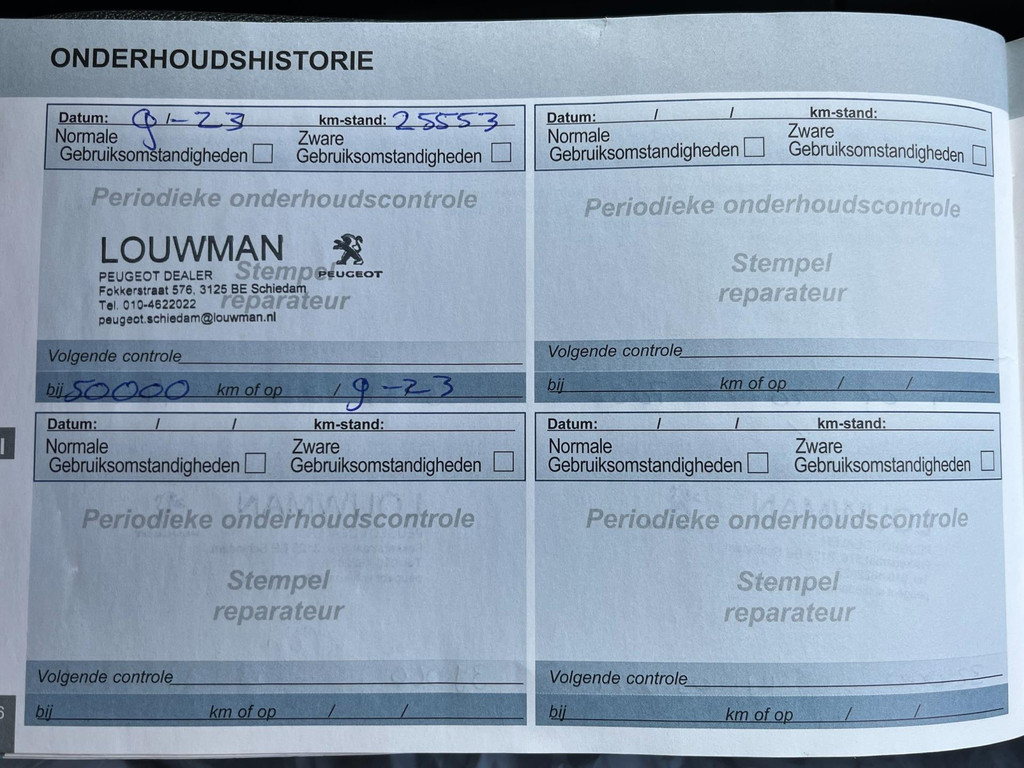 ONDERHOUDSHISTORIE
Datum: 9 /-23 km-stand: 25553
Normale Zware
Gebruiksomstandigheden Gebruiksomstandigheden
Periodieke onderhoudscontrole
LOUWMAN
PEUGEOT DEALER Stempel PEUGEOT
Fokkerstraat 576, 3125 BE Schiedam
Tel. 010-4622022 reparateur
peugeot.schiedam@louwman.nl
Volgende controle
bij 50000 km of op / 9-23
Datum: / / km-stand:
Normale Zware
Gebruiksomstandigheden Gebruiksomstandigheden
Periodieke onderhoudscontrole
Stempel
reparateur
Volgende controle
bij km of op / /
Datum: / / km-stand:
Normale Zware
Gebruiksomstandigheden Gebruiksomstandigheden
Periodieke onderhoudscontrole
Stempel
reparateur
Volgende controle
bij km of op / /
Datum: / / km-stand:
Normale Zware
Gebruiksomstandigheden Gebruiksomstandigheden
Periodieke onderhoudscontrole
Stempel
reparateur
Volgende controle
bij km of op / /